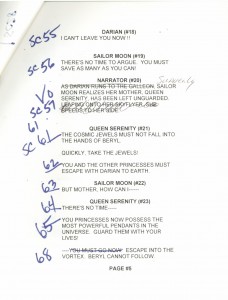 DARIAN (#18)
SC 55
I CAN'T LEAVE YOU NOW !!
SAILOR MOON (#19)
SC 56
THERE'S NO TIME TO ARGUE. YOU MUST
SAVE AS MANY AS YOU CAN!
NARRATOR (#20)
Serenity
V/O
AS DARIAN RUNS TO THE GALLEON, SAILOR
SC 59
MOON REALIZES HER MOTHER, QUEEN
SERENITY, HAS BEEN LEFT UNGUARDED.
LEAPING ONTO HER SKYFLYER, SHE
SPEEDS TO HER SIDE.
61
QUEEN SERENITY (#21)
SC 61
THE COSMIC JEWELS MUST NOT FALL INTO
THE HANDS OF BERYL.
QUICKLY, TAKE THE JEWELS!
62
YOU AND THE OTHER PRINCESSES MUST
ESCAPE WITH DARIAN TO EARTH.
63
SAILOR MOON (#22)
BUT MOTHER, HOW CAN I-----
64
QUEEN SERENITY (#23)
THERE'S NO TIME----
65
YOU PRINCESSES NOW POSSESS THE
MOST POWERFUL PENDANTS IN THE
UNIVERSE. GUARD THEM WITH YOUR
LIVES!
68
YOU MUST GO NOW. ESCAPE INTO THE
VORTEX. BERYL CANNOT FOLLOW.
PAGE #5